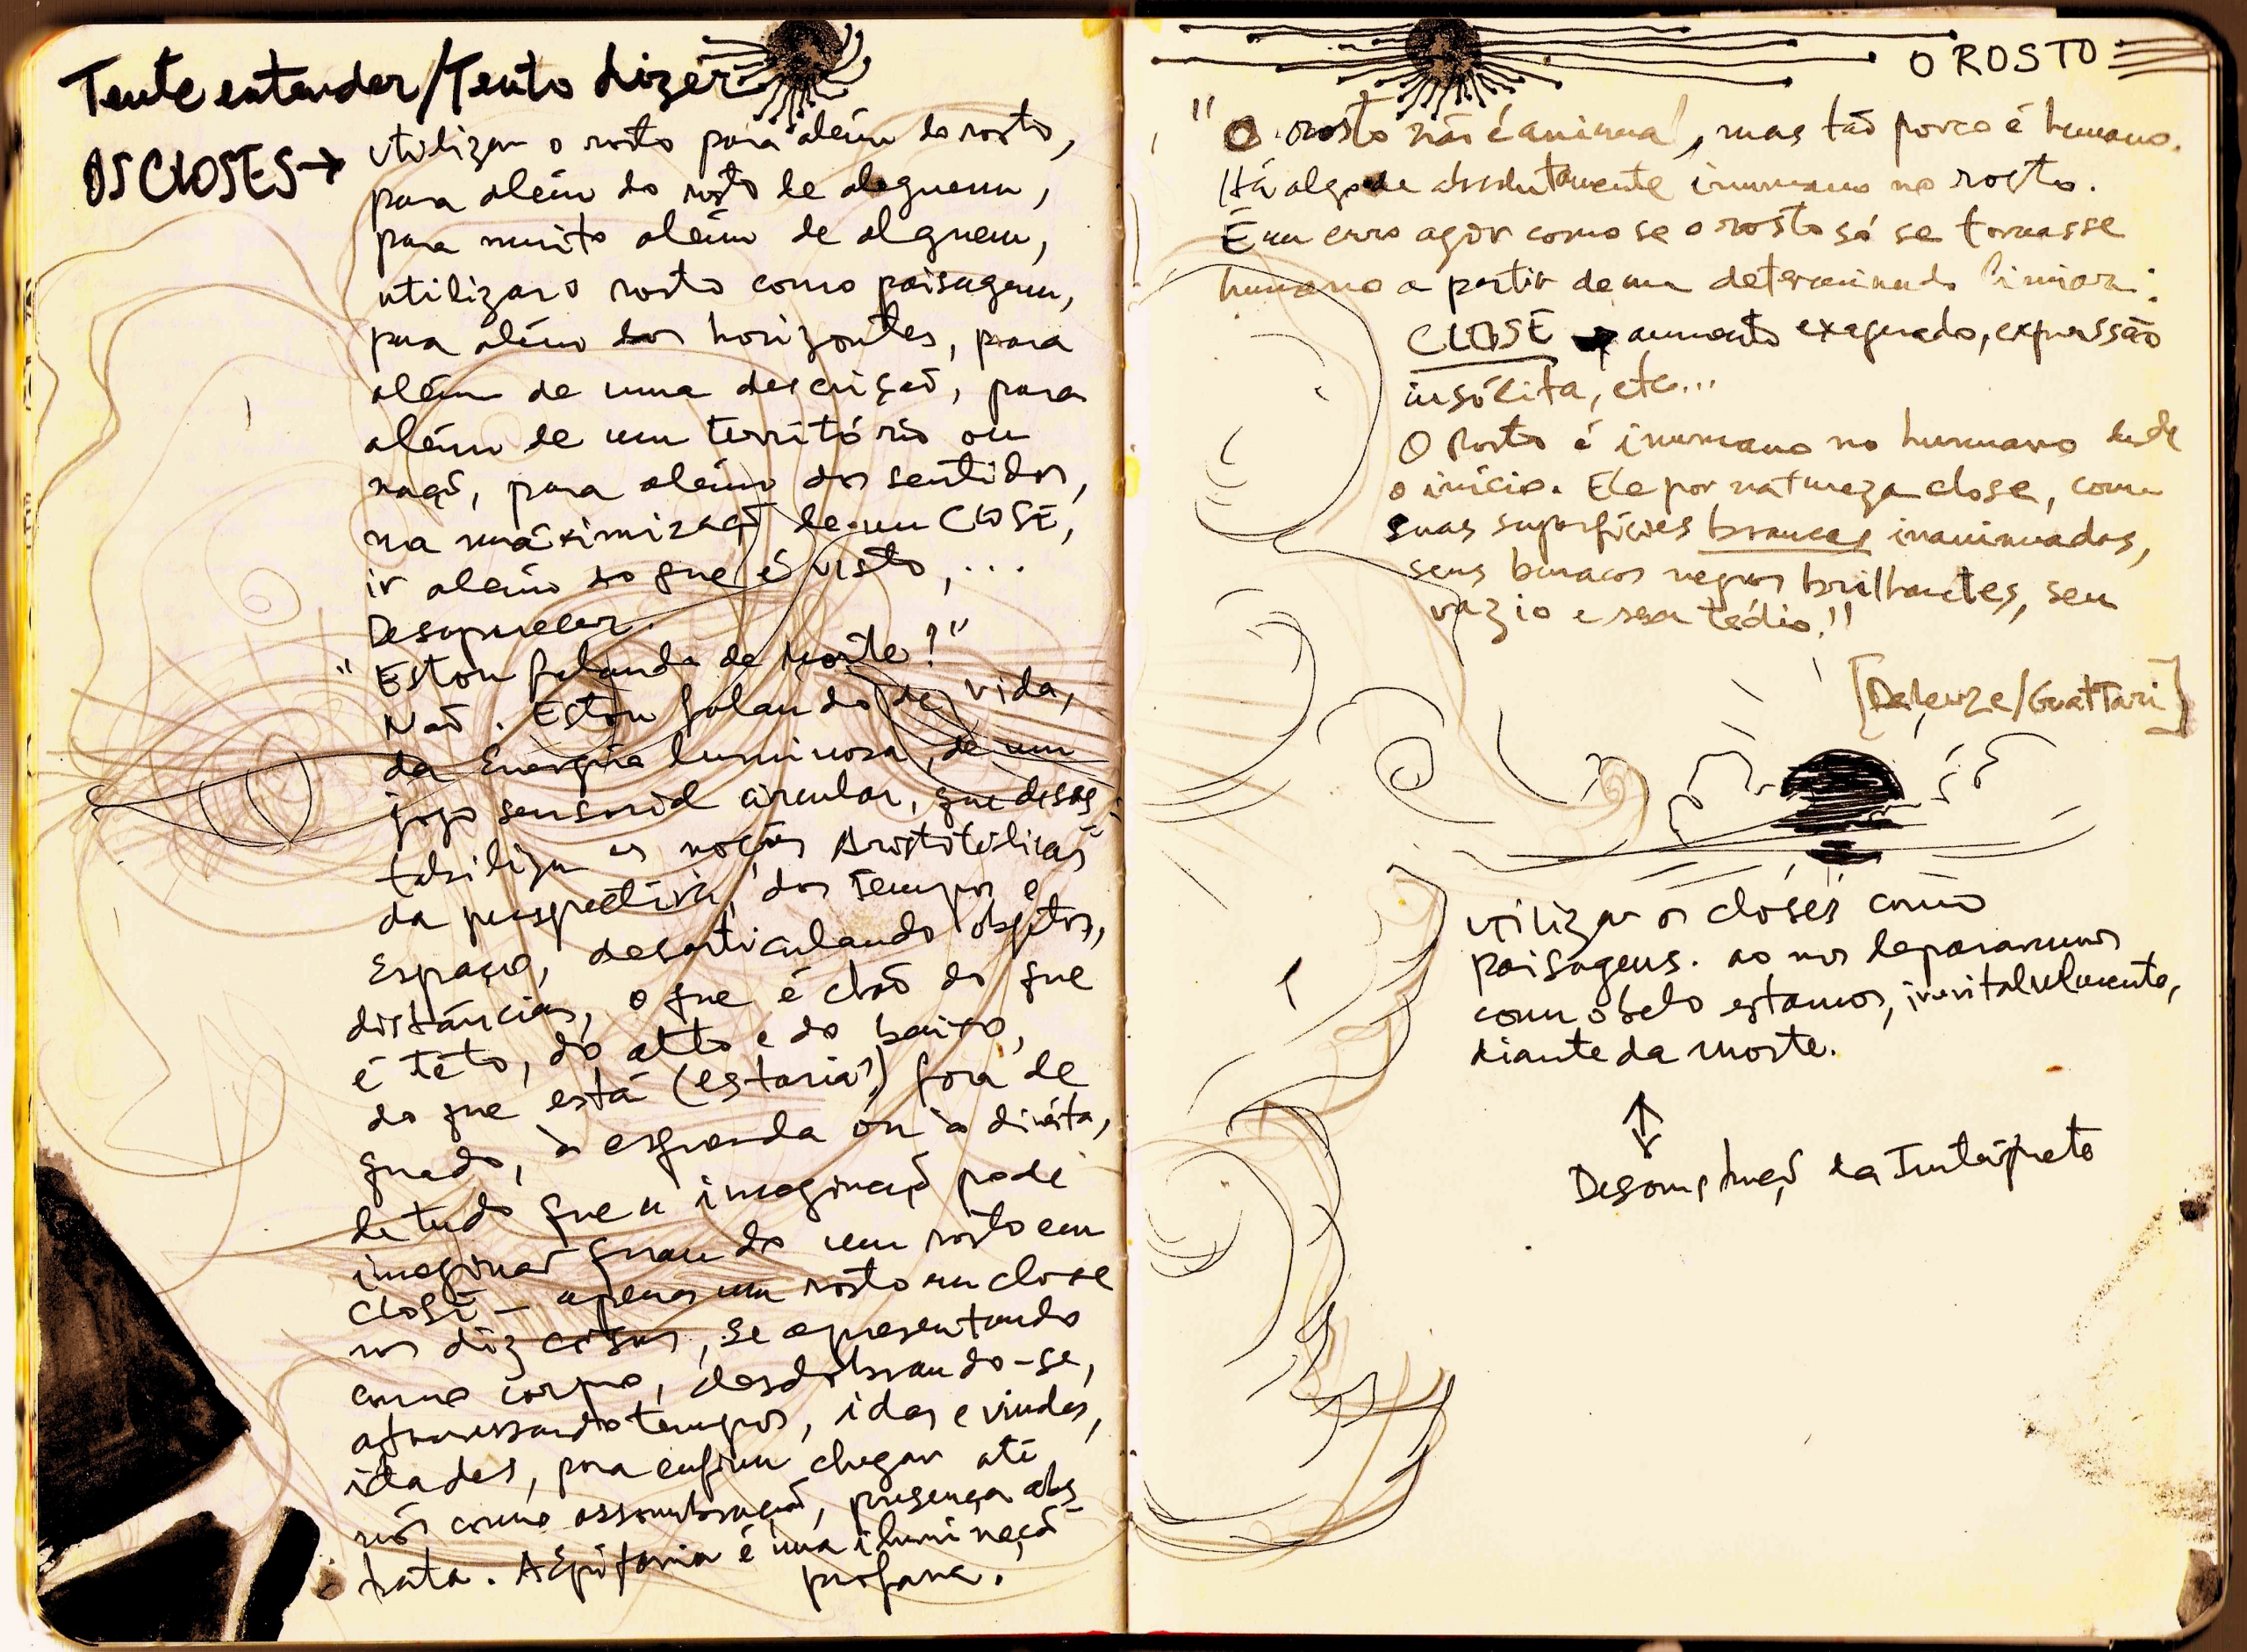 Tente entender/Tento dizer
OS CLOSES → utilizar o rosto para além do rosto,
para além do rosto de alguem,
para muito além de alguem,
utilizar o rosto como paisagem,
para além dos horizontes, para
além de uma descrição, para
além de um território ou
nação, para além dos sentidos,
na máximização de um CLOSE,
ir além do que é visto, ...
Desaparecer.
"Estou falando de Morte?"
Não. Estou falando de vida,
da Energia luminosa, de um
jogo sensorial circular, que deses-
tabiliza as noções Aristotélicas
da perspectiva, dos tempos e
Espaço, desarticulando objetos,
distâncias, o que é chão do que
é teto, do alto e do baixo,
do que está (estaria?) fora de
quadro, à esquerda ou à direita,
de tudo que a imaginação pode
imaginar quando um rosto em
close – apenas um rosto em close
nos diz coisas, se apresentando
como corpo, desdobrando-se,
atravessando tempos, idas e vindas,
idades, para enfim chegar até
nós como assombração, presença abs-
trata. A Epifania é uma iluminação
profana.
O ROSTO
"O rosto não é animal, mas tão pouco é humano.
Há algo de absolutamente inumano no rosto.
É um erro agir como se o rosto só se tornasse
humano a partir de um determinado limiar:
CLOSE → aumento exagerado, expressão
insólita, etc...
O Rosto é inumano no humano desde
o início. Ele por natureza close, com
suas superfícies brancas inanimadas,
seus buracos negros brilhantes, seu
vazio e seu tédio!!
[Deleuze/Guattari]
utilizar os closes como
paisagens. ao nos depararmos
com o belo estamos, inevitalvelmente,
diante da morte.
↕
Desconstrução da Intérprete